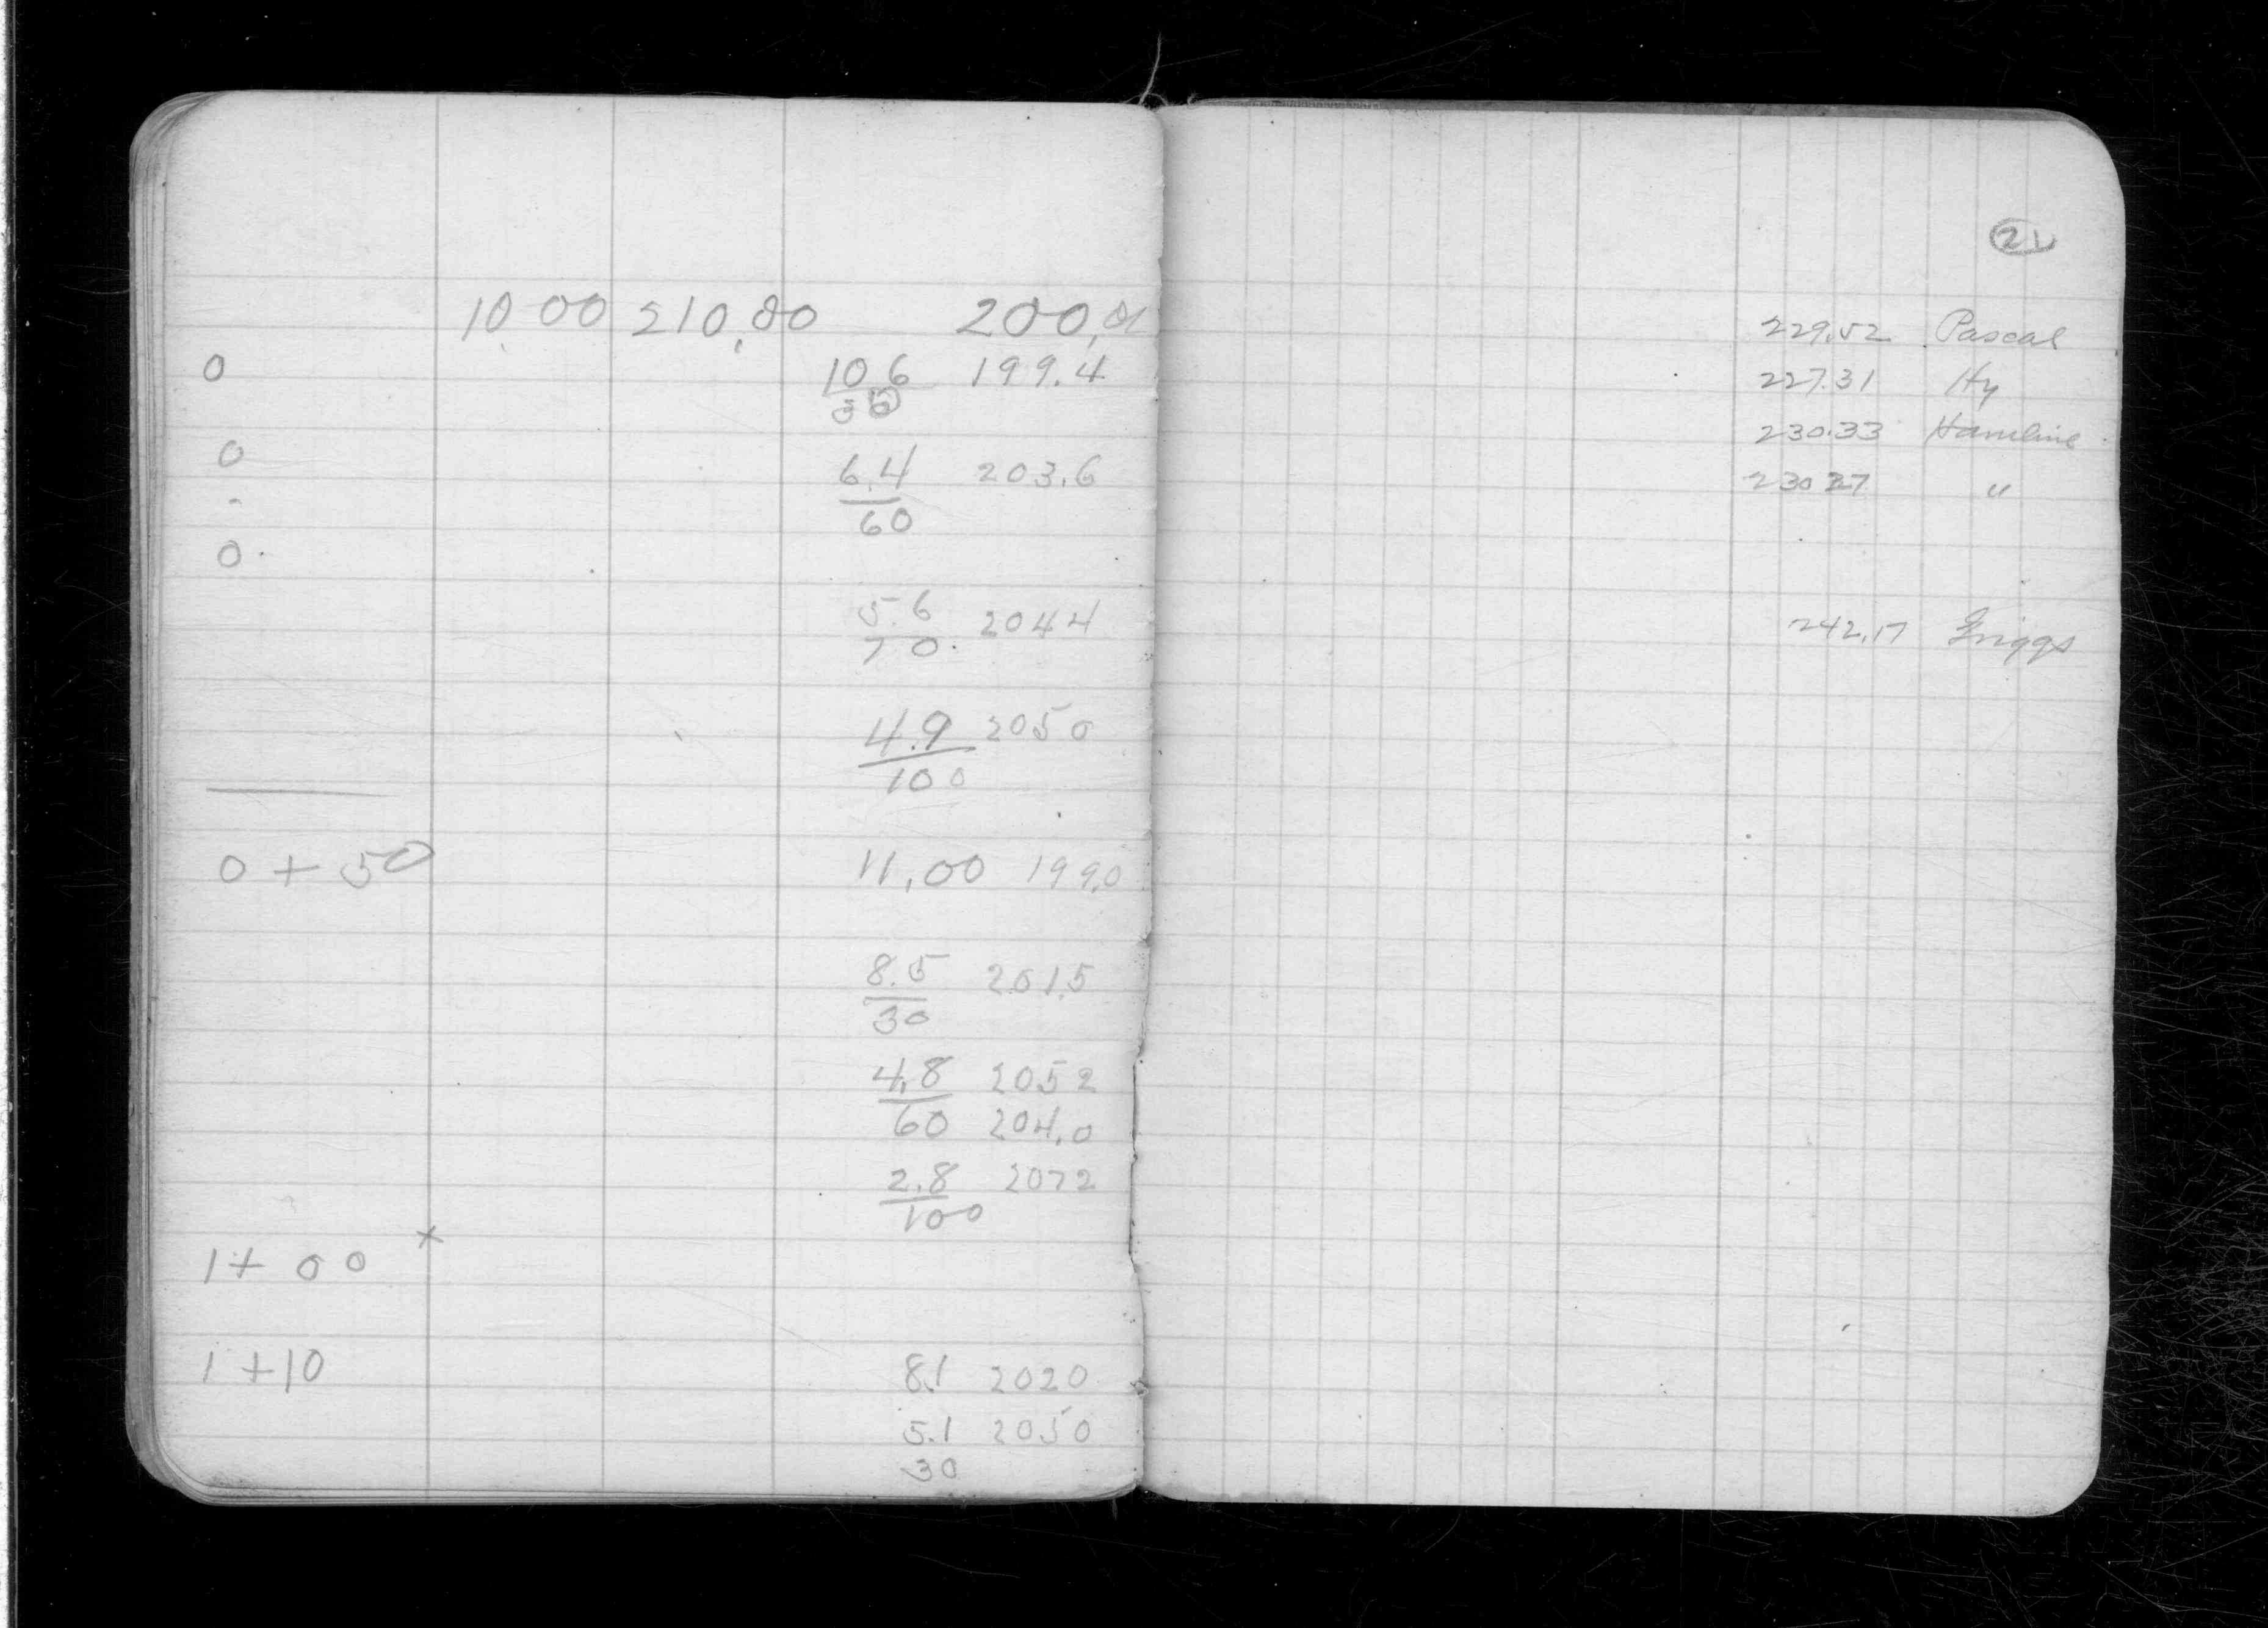 10.00 210.00 200.00
0 10.6 199.4
35
0 6.4 203.6
60
0.
5.6 2044
70.
4.9 2050
100
0 + 50 11.00 199.0
8.5 201.5
30
4.8 2052
60 204.0
2.8 2072
100
1 + 00 x
1 + 10 8.1 2020
5.1 2050
30
229.52 Pascal
227.31 Hy
230.33 Hamline
230 27 "
242.17 Griggs